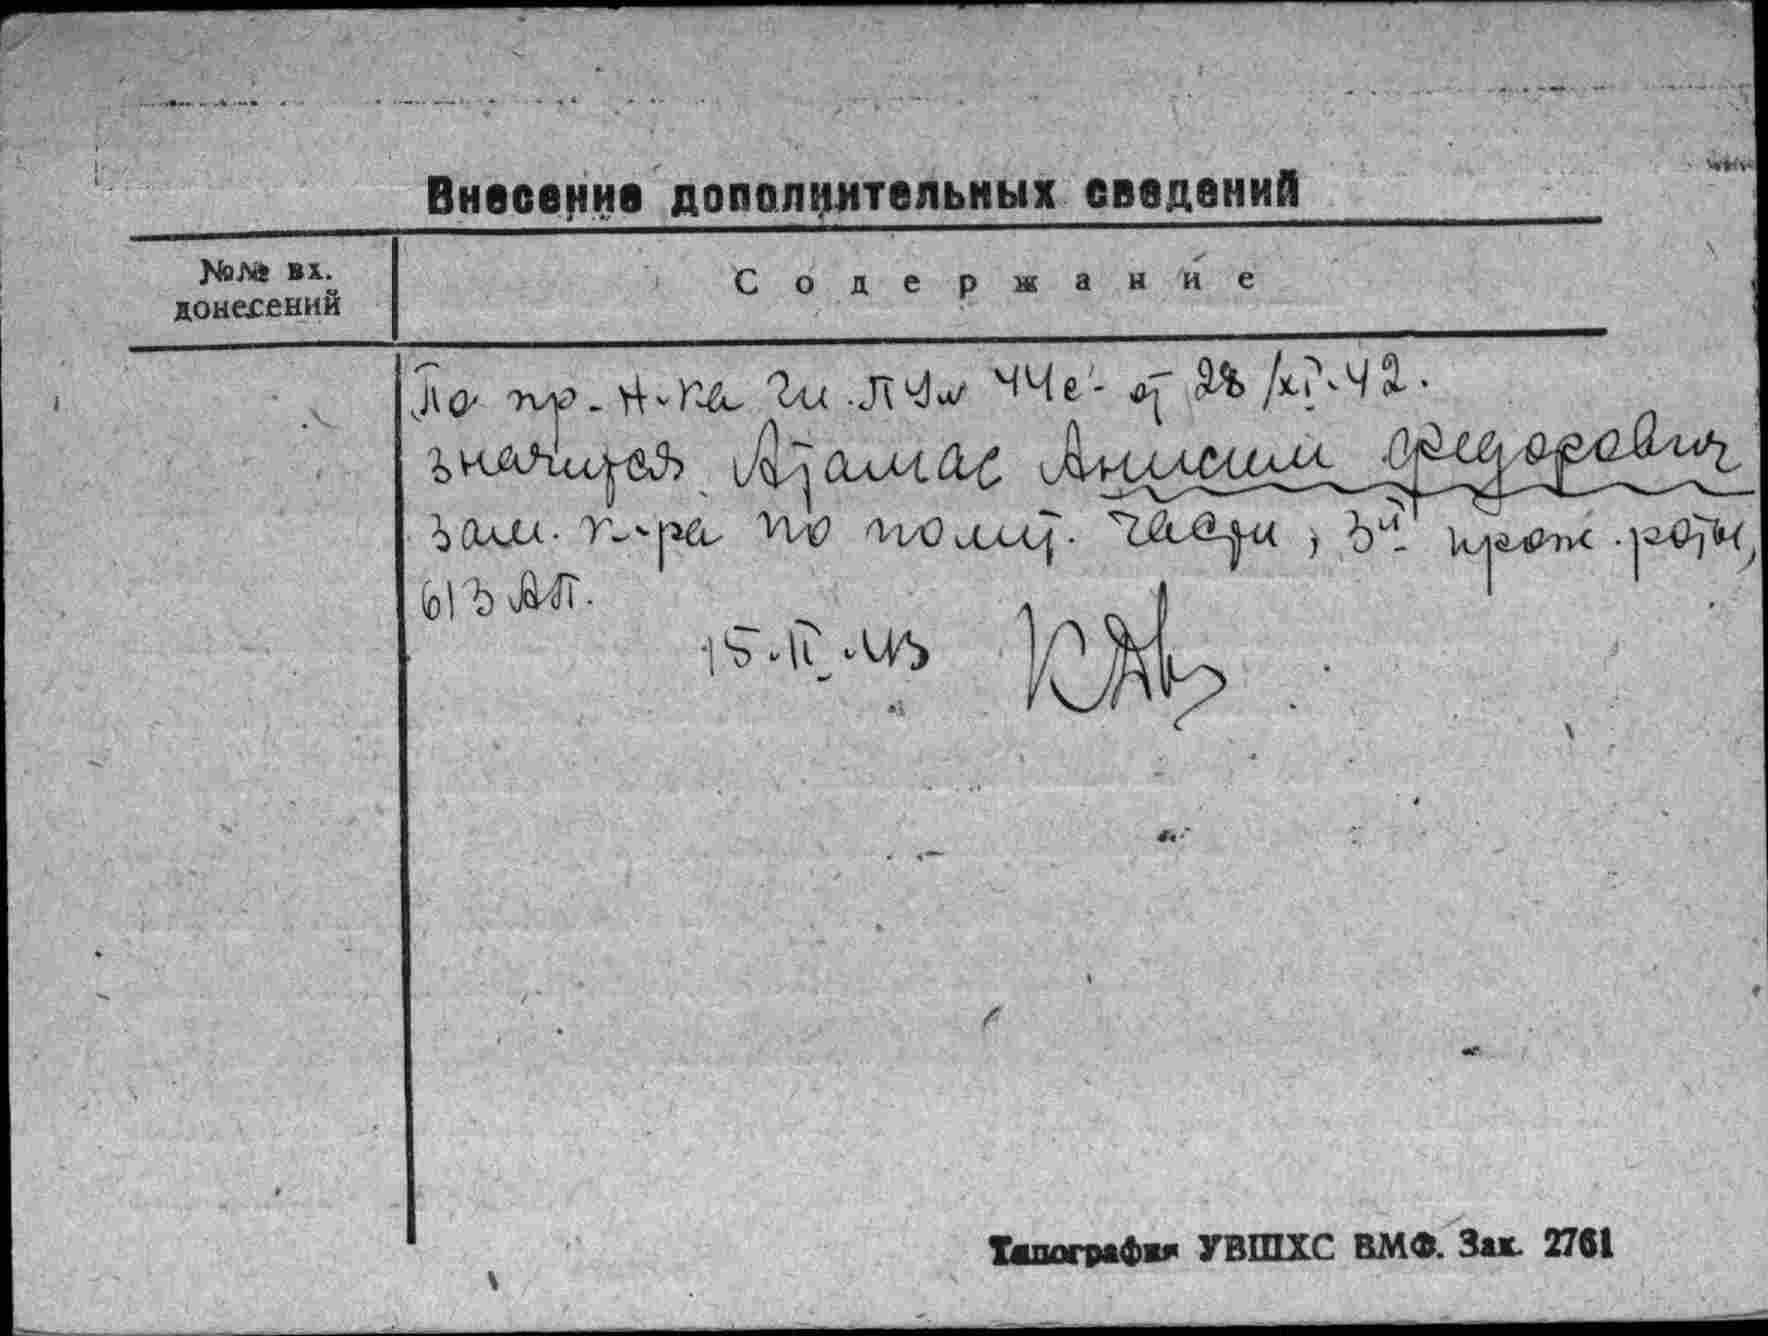 Внесение дополнительных сведений
№№ вх.
донесений
Содержание
По пр. н-ка Гл. ПУ № 44с от 28/XI-42.
значится Атамас Анисим Федорович
зам. к-ра по полит. части, 3й прож. роты,
613 АП.
15.II.43
Типография УВШХС ВМФ. Зак. 2761